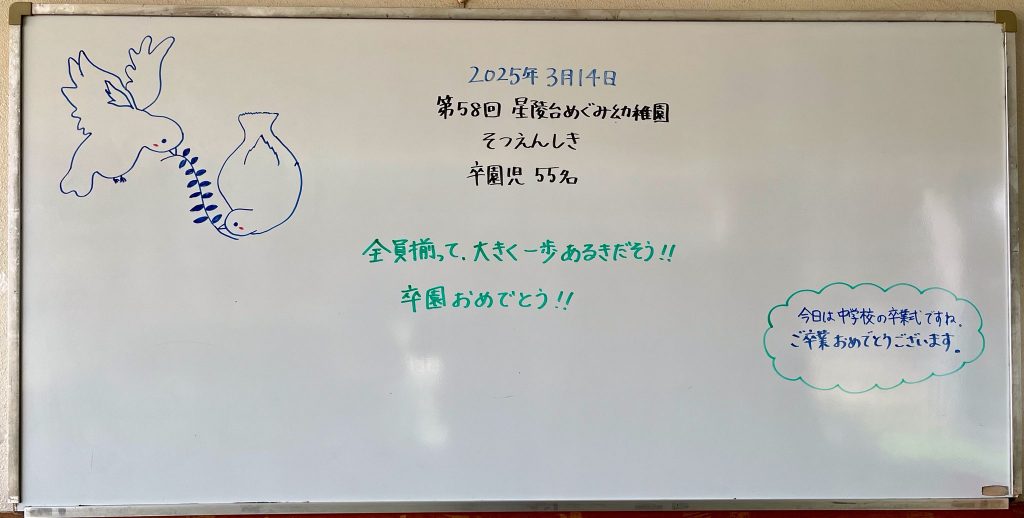 2025年 3月14日
第58回 星陵台めぐみ幼稚園
そつえんしき
卒園児 55名
全員揃って、大きく一歩あるきだそう!!
卒園おめでとう!!
今日は中学校の卒業式ですね。
ご卒業おめでとうございます。